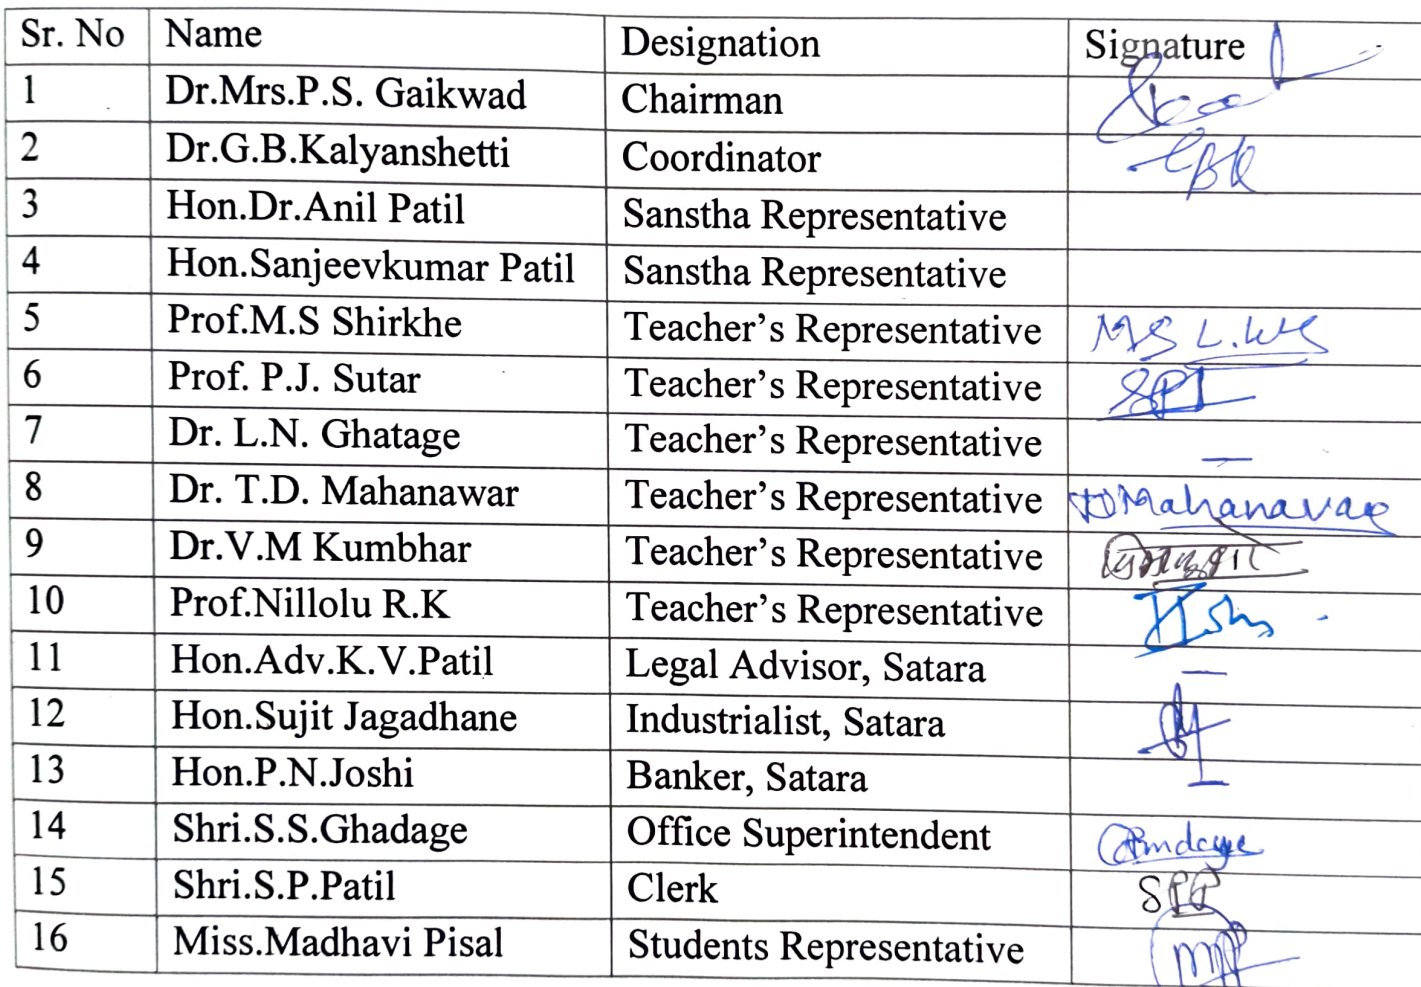 Sr. No Name Designation Signature
1 Dr.Mrs.P.S. Gaikwad Chairman
2 Dr.G.B.Kalyanshetti Coordinator
3 Hon.Dr.Anil Patil Sanstha Representative
4 Hon.Sanjeevkumar Patil Sanstha Representative
5 Prof.M.S Shirkhe Teacher's Representative
6 Prof. P.J. Sutar Teacher's Representative
7 Dr. L.N. Ghatage Teacher's Representative —
8 Dr. T.D. Mahanawar Teacher's Representative TDMahanavar
9 Dr.V.M Kumbhar Teacher's Representative
10 Prof.Nillolu R.K Teacher's Representative
11 Hon.Adv.K.V.Patil Legal Advisor, Satara —
12 Hon.Sujit Jagadhane Industrialist, Satara
13 Hon.P.N.Joshi Banker, Satara —
14 Shri.S.S.Ghadage Office Superintendent
15 Shri.S.P.Patil Clerk SPP
16 Miss.Madhavi Pisal Students Representative